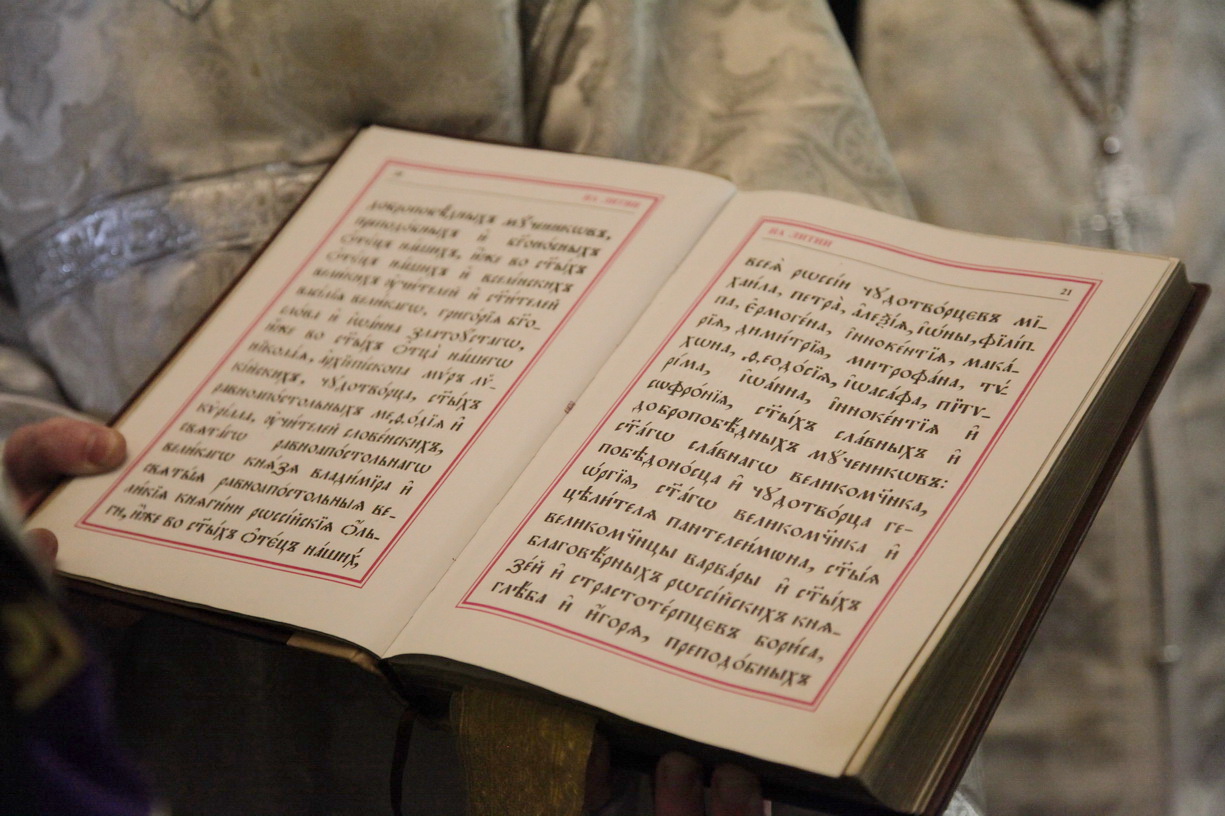 НА ЛИТИИ
добропобѣ́дныхъ мꙋ́ченикѡвъ,
преподо́бныхъ и҆ бг҃оно́сныхъ
ѻ҆тє́цъ на́шихъ, и҆̀же во ст҃ы́хъ
ѻ҆тє́цъ на́шихъ и҆ вселе́нскихъ
вели́кихъ ᲂу҆чи́телей и҆ ст҃и́телей
васі́лїа вели́кагѡ, григо́рїа бг҃о-
сло́ва и҆ і҆ѡа́нна златоꙋ́стагѡ,
и҆́же во ст҃ы́хъ ѻ҆тца̀ на́шегѡ
нїкола́а, а҆рхїепі́скопа мѵ́ръ лѷ-
кі́йскихъ, чꙋдотво́рца, ст҃ы́хъ
равноапо́стольныхъ меѳо́дїа и҆
кѷрі́лла, ᲂу҆чи́телей слове́нскихъ,
свѧта́гѡ равноапо́стольнагѡ
вели́кагѡ кнѧ́зѧ влади́мїра и҆
свѧты́ѧ равноапо́стольныѧ ве-
ли́кїѧ кнѧги́ни рѡссі́йскїѧ ѻ҆́ль-
ги, и҆̀же во ст҃ы́хъ ѻ҆тє́цъ на́шихъ,
НА ЛИТИИ
21
всеѧ̀ рѡссі́и чꙋдотво́рцевъ мї-
хаи́ла, петра̀, а҆леѯі́а, і҆ѡ́ны, філі́п-
па, є҆рмоге́на, і҆нноке́нтїа, мака́-
рїа, дими́трїа, митрофа́на, тѵ́-
хѡна, ѳеодо́сїа, і҆ѡаса́фа, пїтꙋ-
рі́ма, і҆ѡа́нна, і҆нноке́нтїа и҆
сѡфро́нїа, ст҃ы́хъ сла́вныхъ и҆
добропобѣ́дныхъ мꙋ́ченикѡвъ:
ст҃а́гѡ сла́внагѡ великомч҃нка,
побѣдоно́сца и҆ чꙋдотво́рца ге-
ѡ́ргїа, ст҃а́гѡ великомч҃нка и҆
цѣли́телѧ пантелеи́мѡна, ст҃ы́ѧ
великомч҃ницы варва́ры и҆ ст҃ы́хъ
благовѣ́рныхъ рѡссі́йскихъ кнѧ-
зе́й и҆ страстоте́рпцєвъ бори́са,
глѣ́ба и҆ и҆́горѧ, преподо́бныхъ